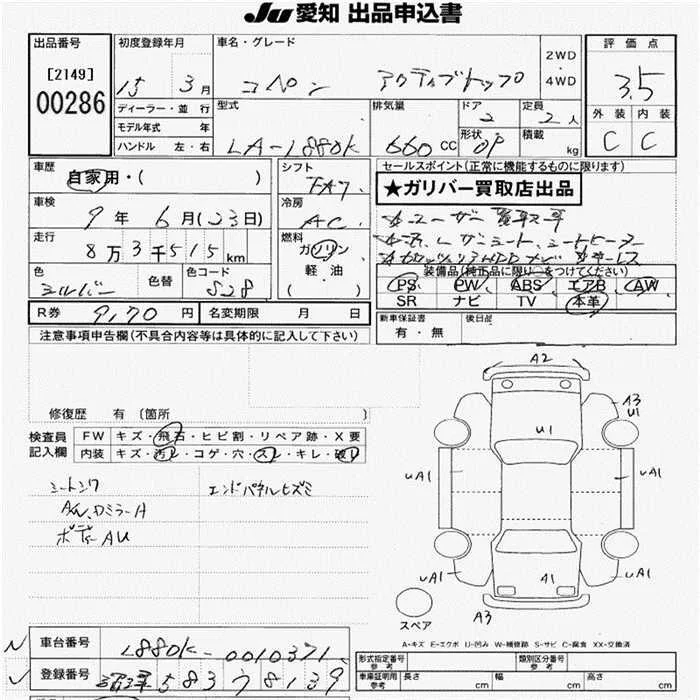 JU 愛知 出品申込書
出品番号
[2149]
00286
初度登録年月
15 3月
ディーラー・並行
モデル年式 年
ハンドル 左・右
車名・グレード
コペン アクティブトップ
2WD
4WD
型式
LA-L880K
排気量
660 CC
ドア
2
形状
OP
定員
2人
積載
kg
評価点
3.5
外装 内装
C C
車歴
自家用・( )
車検
9年 6月(23日)
走行
8万3千515km
色
シルバー
色替
色コード
S28
シフト
FA7
冷房
AC
燃料
ガソリン
軽・油
( )
セールスポイント(正常に機能するものに限ります)
★ガリバー買取店出品
装備品(純正品に限り○をつけてください)
PS PW ABS エアB AW
SR ナビ TV 本革
R券 9,170円
名変期限 月 日
新車保証書
有・無
後日品
注意事項申告欄(不具合内容等は具体的に記入して下さい)
修復歴 有〔箇所
検査員
記入欄
FW キズ・飛石・ヒビ割・リペア跡・X要
内装 キズ・汚レ・コゲ・穴・スレ・キレ・破レ
エンドパネルヒズミ
ボディーAU
A2
A3
U1
U1
UA1
UA1
UA1
UA1
A1
A3
スペア
A・キズ E・エクボ U・凹み W・補修跡 S・サビ C・腐食 XX・交換済
車台番号
L880K-0010371
登録番号
583 78139
形式指定番号
参考
類別区分番号
参考
車庫証明用
参考
長さ cm 幅 cm 高さ cm